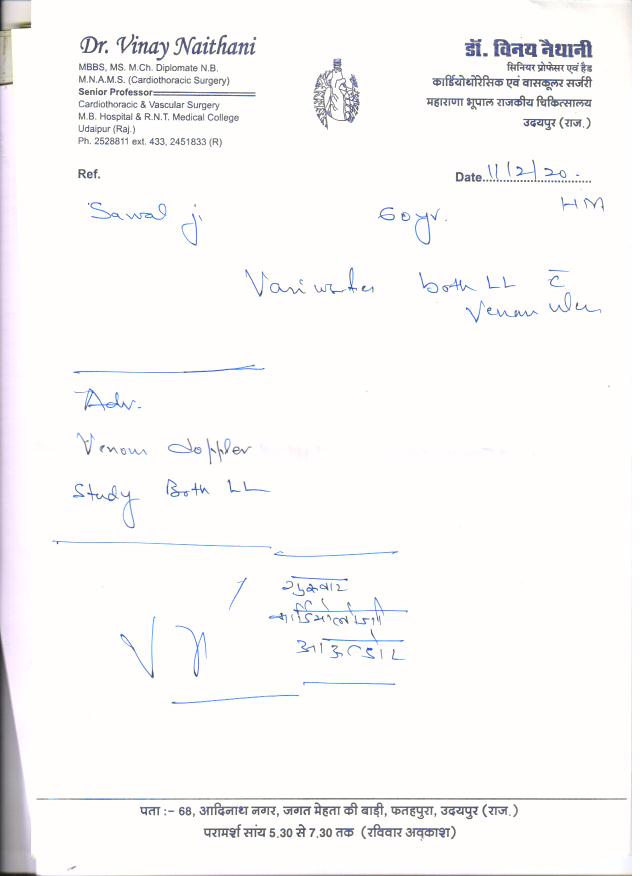 Dr. Vinay Naithani
MBBS, MS. M.Ch. Diplomate N.B.
M.N.A.M.S. (Cardiothoracic Surgery)
Senior Professor
Cardiothoracic & Vascular Surgery
M.B. Hospital & R.N.T. Medical College
Udaipur (Raj.)
Ph. 2528811 ext. 433, 2451833 (R)
डॉ. विनय नैथानी
सिनियर प्रोफेसर एवं हैड
कार्डियोथोरेसिक एवं वासकूलर सर्जरी
महाराणा भूपाल राजकीय चिकित्सालय
उदयपुर (राज.)
Ref.
Date 11/2/20.
Sawal ji 60yr. HM
both LL c̄
Venous ulcer
Adv.
Venous doppler
Study Both LL
शुक्रवार
आउटडोर
पता :– 68, आदिनाथ नगर, जगत मेहता की बाड़ी, फतहपुरा, उदयपुर (राज.)
परामर्श सांय 5.30 से 7.30 तक (रविवार अवकाश)